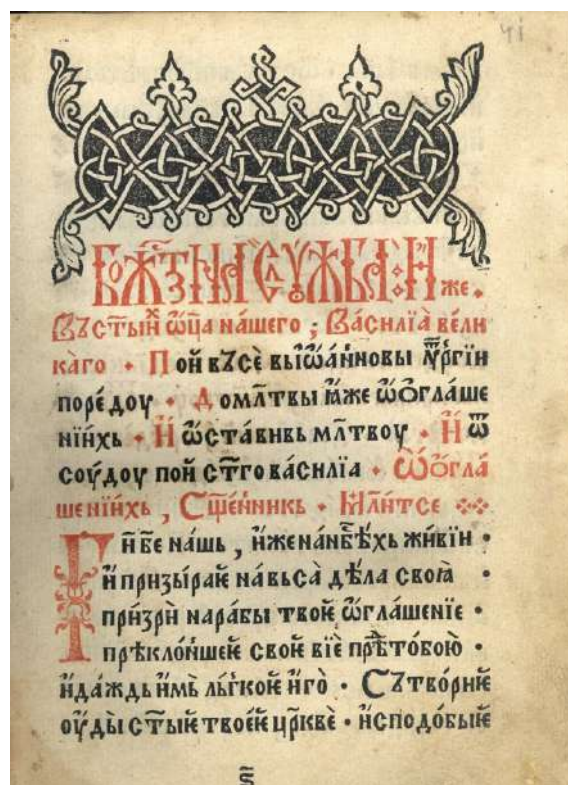 Бо҃жⷭ҇тзнаа Слꙋжба : Иже ·
Въ ст҃ыиⷯ ѿц҃а на́шего ; Васи́лїа̀ вели
ка́го · Пой въсѐ выі̑ѡа́нновы лї҃рги́и
поре́доу · До мл҃твы ꙗ҆́же ѡ҆ ѻ҆гла́ше
нїи́хь · И҆ ѡ҆ста́вивь мл҃твоу · И҆ ѿ
соу́доу пой ст҃го васи́лїа · Ѡ҆ ѻ҆гла́
шенїи́хь , Сщ҃е́нникь · Мл҃и́тсе
Г҃и б҃е на́шь , и҆́же на нб҃сѣхь жи́вїи ·
и҆ призы́рає на вьса̀ дѣ́ла своꙗ̀ ·
при́зрѝ на ра́бы твоѥ ѡ҆гла́шенїе ·
прѣкло́ншеѥ своѥ вїѐ прѣⷣ тобо́ю ·
и҆ да́ждь и҆̀мь ль́гкоѥ и҆́го̀ · Сътво́риѥ
оу҆́ды̀ ст҃ыѥ твоеѥ́ цр҃квѐ · и҆ сподо́быѥ